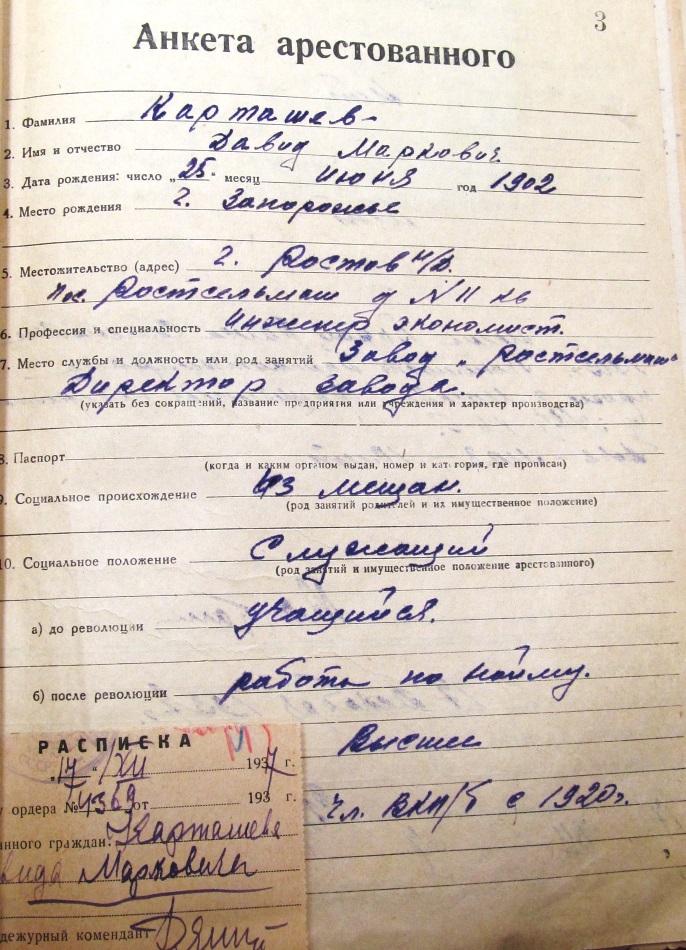 3
Анкета арестованного
1. Фамилия Карташев
2. Имя и отчество Давид Маркович
3. Дата рождения: число „25“ месяц июня год 1902
4. Место рождения г. Запорожье
5. Местожительство (адрес) г. Ростов н/Д.
пос. Ростсельмаш д N 11 кв
6. Профессия и специальность Инженер экономист.
7. Место службы и должность или род занятий Завод „Ростсельмаш“
Директор завода.
(указать без сокращений, название предприятия или учреждения и характер производства)
8. Паспорт
(когда и каким органом выдан, номер и категория, где прописан)
9. Социальное происхождение Из мещан.
(род занятий родителей и их имущественное положение)
10. Социальное положение Служащий
(род занятий и имущественное положение арестованного)
а) до революции учащийся.
б) после революции работа по найму.
Высшее
чл. ВКП/б с 1920 г.
РАСПИСКА
„17“ /XII 1937 г.
у ордера № 4369 от 193 г.
нного граждан. Карташева
вида Марковича
дежурный комендант